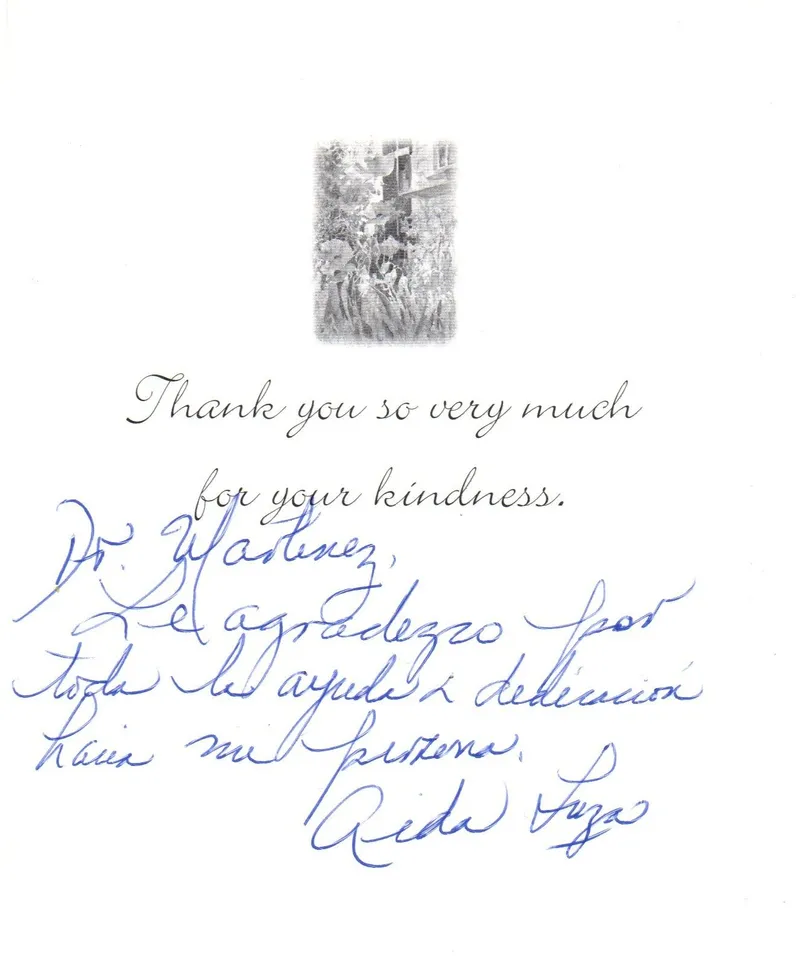 Thank you so very much
for your kindness.
Dr. Martinez,
Le agradezco por
toda la ayuda & dedicación
hacia mi perzona.
Aida Luza